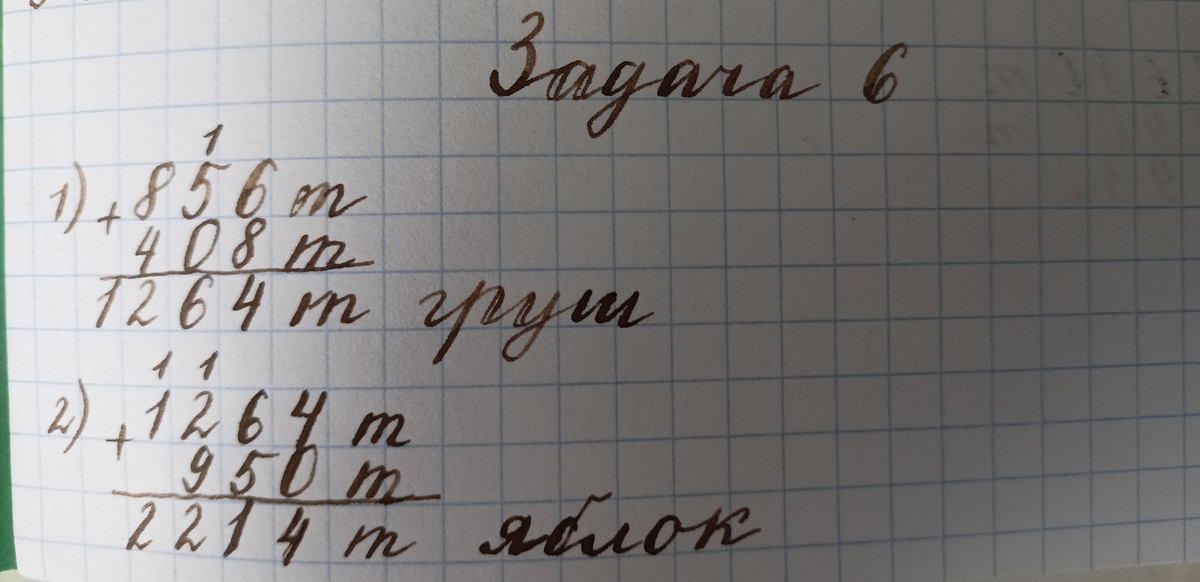 Задача 6
1
1) + 856 т
408 т
1264 т груш
1 1
2) + 1264 т
950 т
2214 т яблок